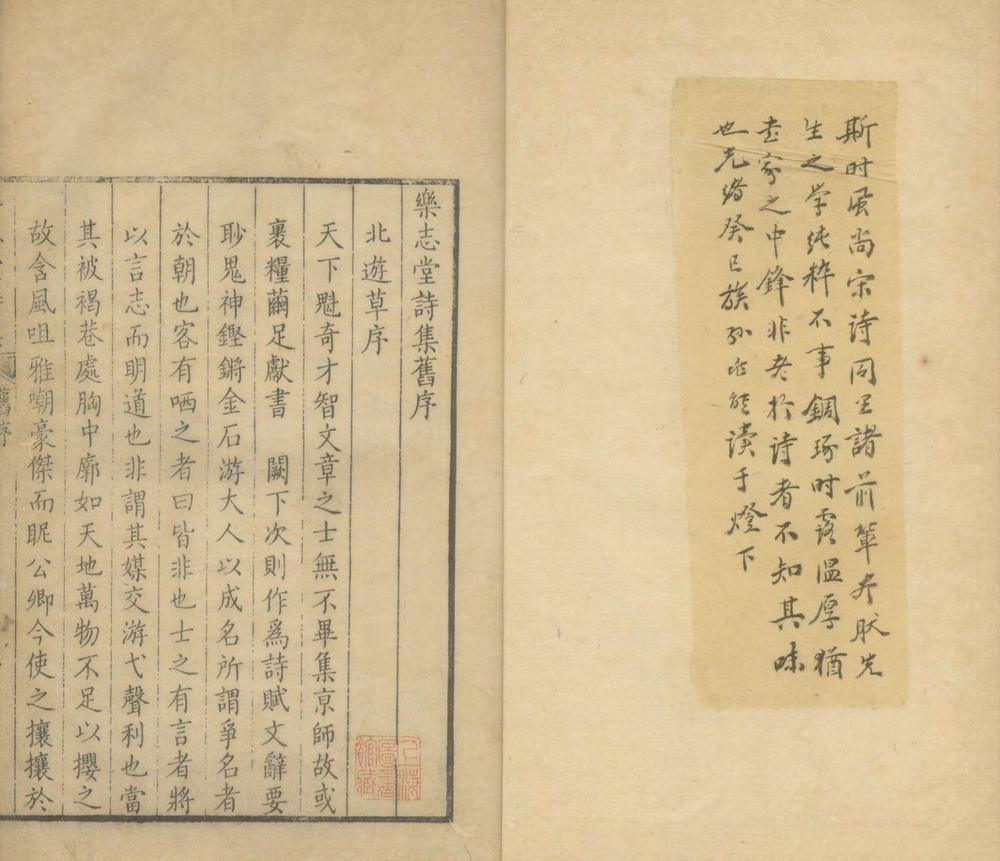 斯时风尚宋诗同里諸前輩
生之学纯粹不事錭琢时露温厚猶
書家之中鋒非老於诗者不知其味
也光绪癸巳族孙 读于燈下
樂志堂詩集舊序
北遊草序
天下魁奇才智文章之士無不畢集亰師故或
裹糧繭足獻書　闕下次則作爲詩賦文辭要
眇鬼神鏗鏘金石游大人以成名所謂爭名者
於朝也客有哂之者曰皆非也士之有言者將
以言志而明道也非謂其媒交游弋聲利也當
其被褐巷處胸中廓如天地萬物不足以攖之
故含風咀雅嘲豪傑而眤公卿今使之攘攘於
舊序
上海圖書館藏